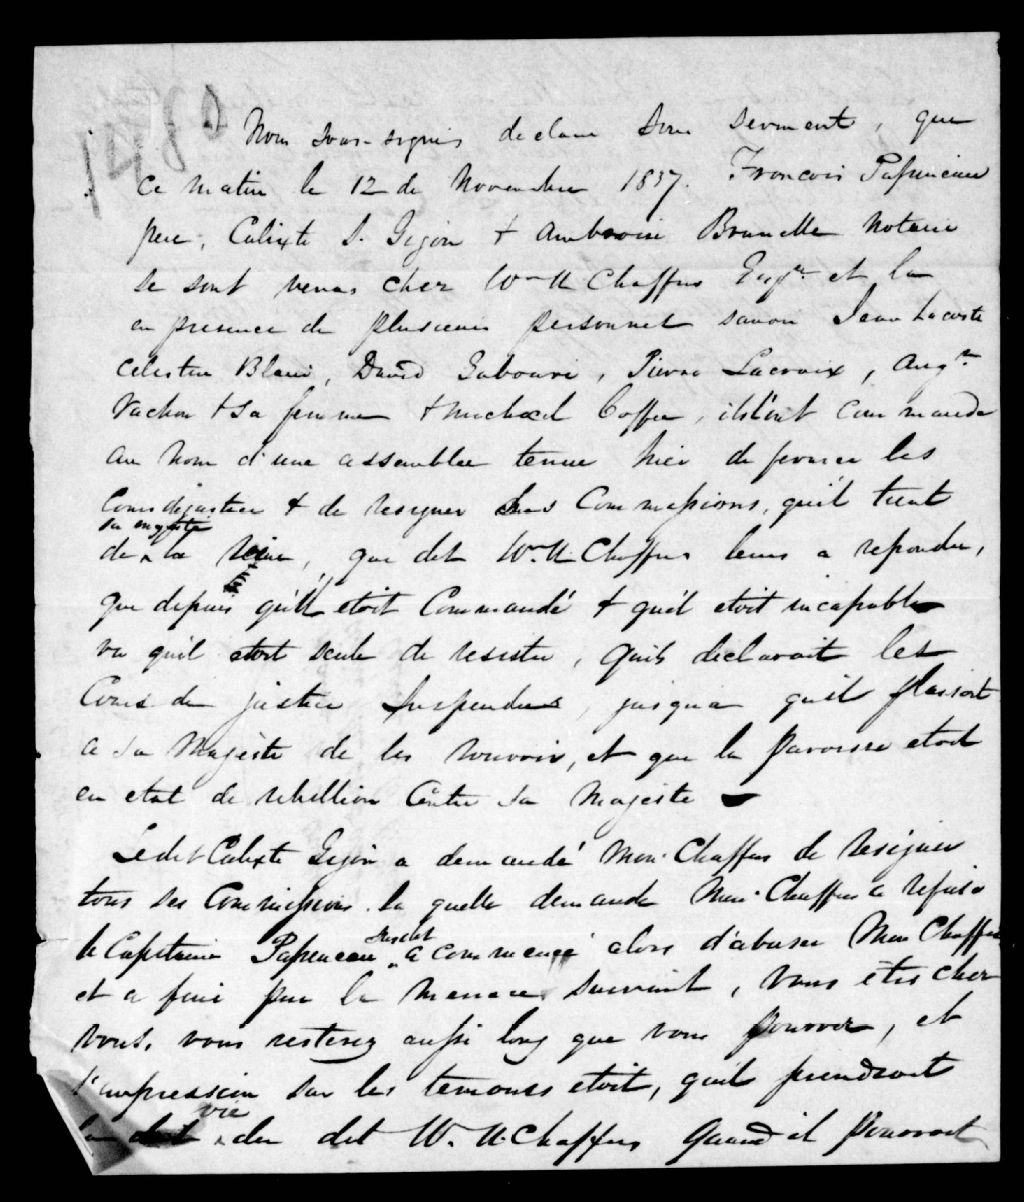 Nous sous-signés declare sous serment, que
ce matin le 12 de Novembre 1837. Francois Papineau
pere, Calixte S. Gigon + Ambroise Brunelle Notaire
se sont venus chez Wm U Chaffers Esqr et la
en presence de plusieurs personnes savoir Jean Lacoste
Celestin Blain, David Gabouri, Pierre Lacroix, Augn
Vachon + sa femme + Michael Coffee, ils l'ont commande
au Nom d'une assemblee tenue hier de fermer les
Cours de justice + de resigner les Commissions, qu'il tient
de sa majeste la Reine, que dit Wm U. Chaffers leurs a repondu,
que depuis qu'il etoit Commandé + qu'il etoit incapable
vu qu'il etoit seule de resister, qu'ils declarait les
Cours de justice suspendues, jusqu'a qu'il plairoit
a Sa Majeste de les rouvrir, et que la Paroisse etoit
en etat de rebellion Contre Sa Majeste
Ledit Calixte Gigon a demandé Mon. Chaffers de resigner
tous ses Commissions. la quelle demande Mon. Chaffers a refusé
le Capitaine Papineau Susdit a commencé alors d'abuser Mon Chaffers
et a fini par la menace suivant, Vous êtes chez
vous, vous resterez aussi long que vous pourrez, et
l'impression sur les temoins etoit, qu'il prendroit
la vie du dit W. U. Chaffers Quand il Pourroit